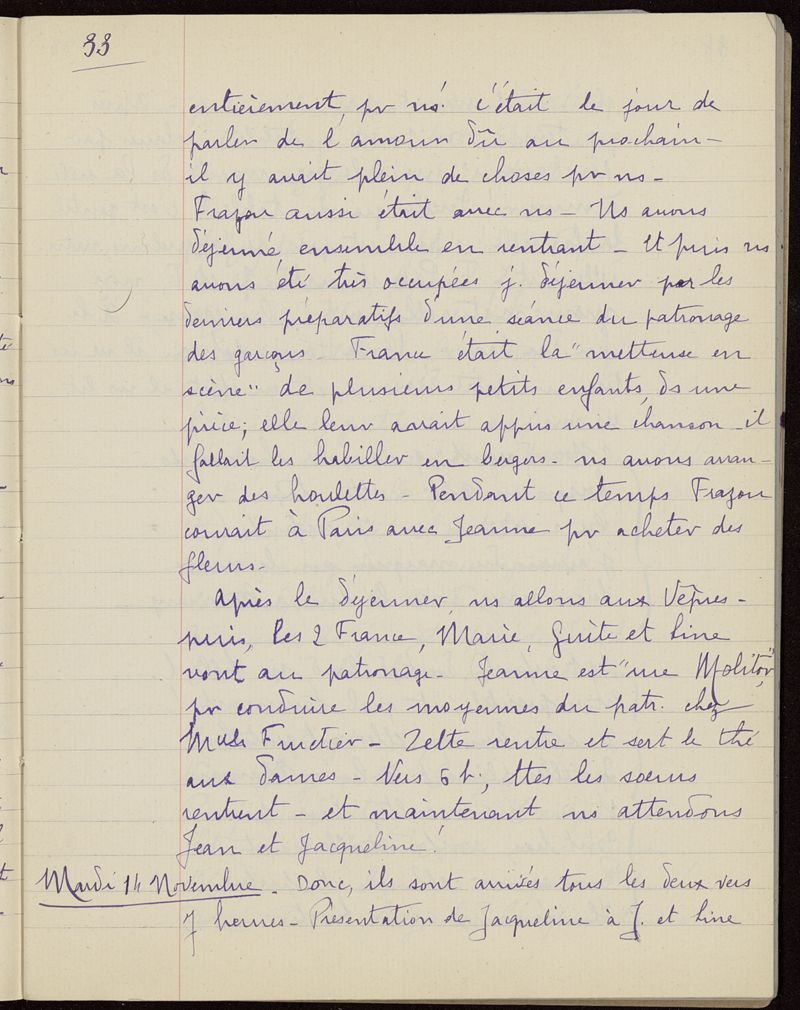 33
entièrement, pr ns. c'était le jour de
parler de l'amour dû au prochain -
il y avait plein de choses pr ns -
Frazou aussi était avec ns - Ns avons
déjeuné, ensemble en rentrant - Et puis ns
avons été très occupées j. déjeuner par les
derniers préparatifs d'une séance du patronage
des garçons France était la "metteuse en
scène" de plusieurs petits enfants, ds une
pièce; elle leur avait appris une chanson - il
fallait les habiller en bergers - ns avons arran-
ger des houlettes - Pendant ce temps Frazou
courait à Paris avec Jeanne pr acheter des
fleurs -
Après le déjeuner, ns allons aux Vêpres -
puis, les 2 France, Marie, Guite et Line
vont au patronage - Jeanne est "rue Molitor",
pr conduire les moyennes du patr. chez
Zette rentre et sert le thé
aux dames - Vers 5 h; ttes les soeurs
rentrent - et maintenant ns attendons
Jean et Jacqueline!
Mardi 14 Novembre - Donc, ils sont arrivés tous les deux vers
7 heures - Présentation de Jacqueline à J. et Line